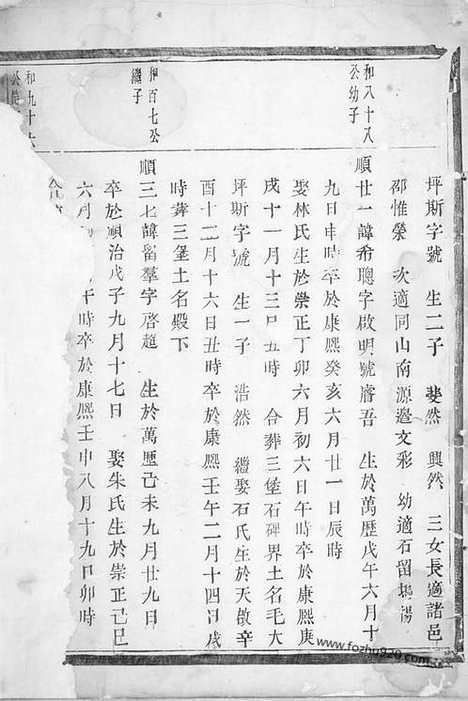 坪斯字號 生二子 斐然 興然 三女長適諸邑
邵惟榮 次適同山南源邉文彩 幼適石留 楊
和八十八
公幼子
順世一諱希聰字啟明號睿吾 生於萬歷戊午六月十
九日申時卒於康熙癸亥六月廿一日辰時
娶林氏生於崇正丁卯六月初六日午時卒於康熙庚
戌十一月十三日丑時 合葬三堡石碑界土名毛大
坪斯字號 生一子 浩然 繼娶石氏生於天啟辛
酉十二月十六日丑時卒於康熙壬午二月十四日戌
時葬三堡土名殿下
和百七公
繼子
順三七諱留羣字啓超 生於萬歷己未九月廿九日
卒於順治戊子九月十七日 娶朱氏生於崇正己巳
六月 午時卒於康熙壬申八月十九日卯時
合
和九十六
公長
www.fozhu920.com